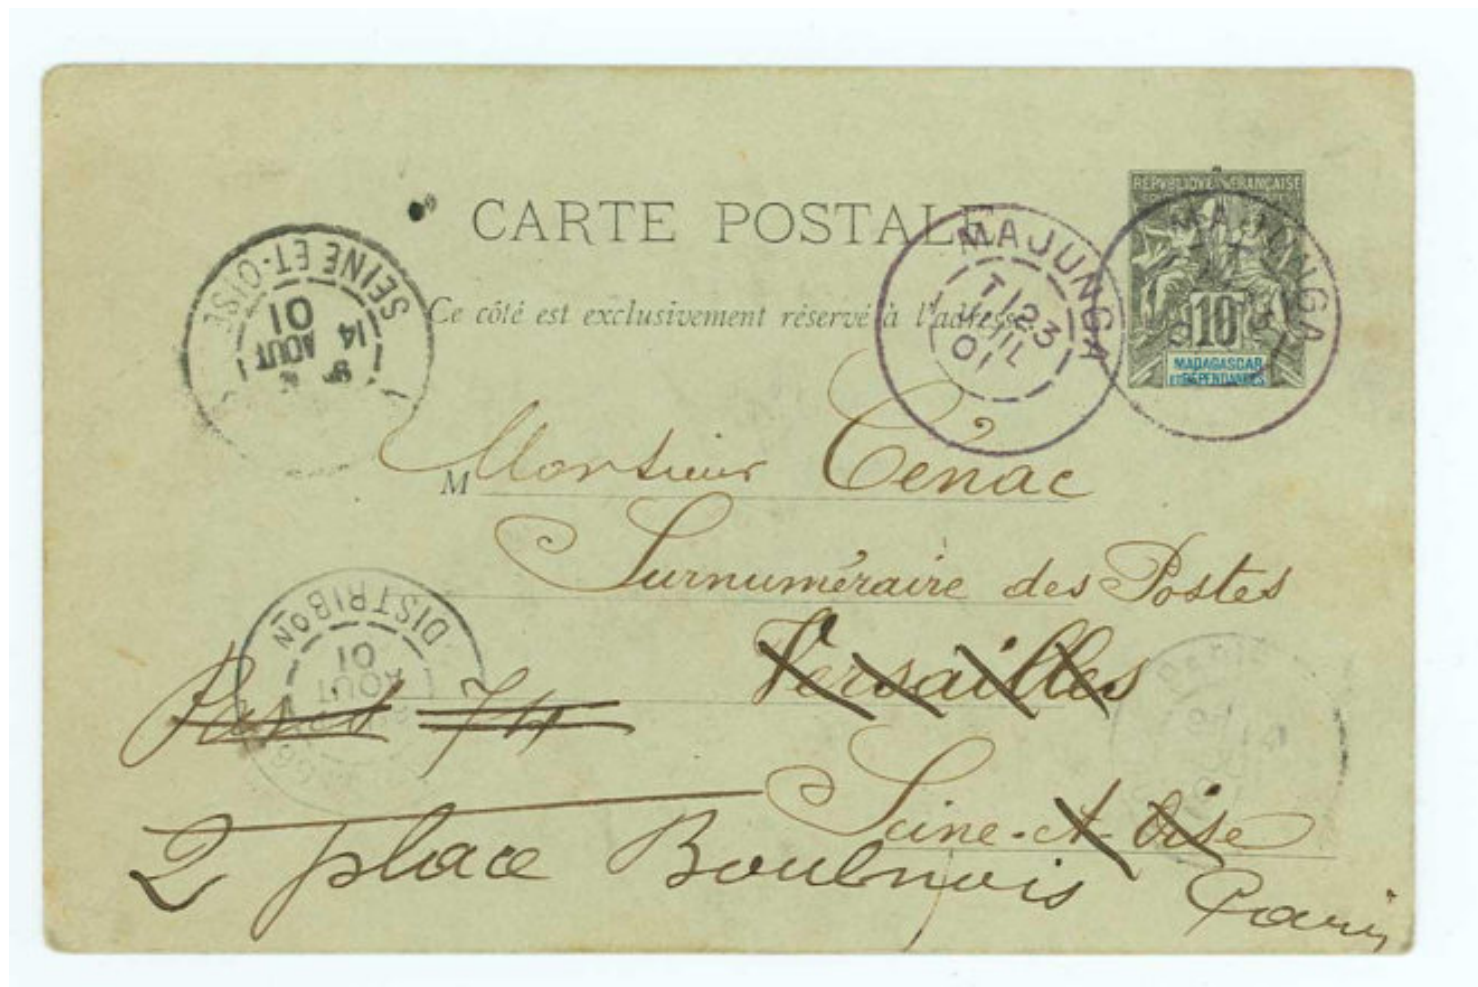 CARTE POSTALE
Ce côté est exclusivement réservé à l'adresse.
REPVBLIQVE FRANÇAISE
10
MADAGASCAR
ET DÉPENDANCES
MAJUNGA
23
JUIL
01
MAJUNGA
SEINE-ET-OISE
14
AOUT
01
M Monsieur Cénac
Surnuméraire des Postes
Versailles
Seine-et-Oise
DISTRIBON
AOUT
01
Paris
14
2 place Boulnois Paris